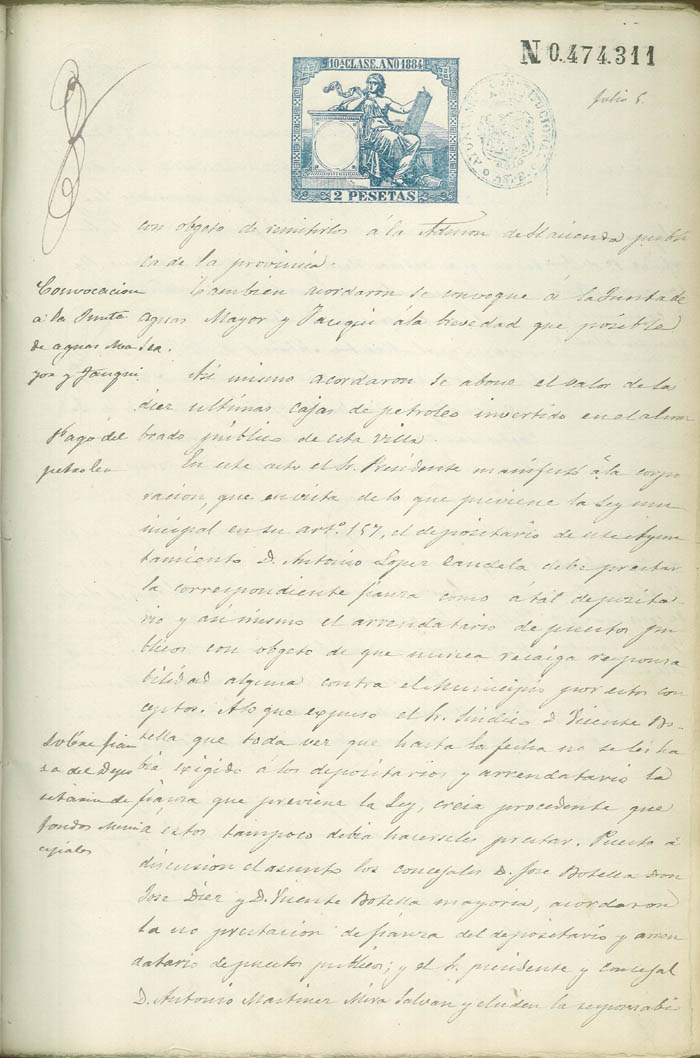 10ª CLASE. AÑO 1884
2 PESETAS
N 0.474.311
Julio 5.
con objeto de remitirlos á la Admon de Hacienda publi
ca de la provincia.
Convocacion
a la Junta
de aguas Ma
yor y Fauqui
Tambien acordaron se convoque á la Junta de
aguas Mayor y Fauqui á la brevedad que posible
sea.
Asi mismo acordaron se abone el valor de las
diez ultimas cajas de petroleo invertido en el alum
brado público de esta villa.
Pago del
petroleo
En este acto el Sr. Presidente manifestó á la corpo
racion, que en vista de lo que previene la Ley mu
nicipal en su artº. 157, el depositario de este Ayun
tamiento D. Antonio Lopez Candela debe prestar
la correspondiente fianza como á tál deposita
rio y asi mismo el arrendatario de puestos pu
blicos con objeto de que nunca recaiga responsa
bilidad alguna contra el Municipio por estos con
ceptos. A lo que expuso el Sr. Sindico D Vicente Bo-
tella que toda vez que hasta la fecha no se les ha
bia exigido á los depositarios y arrendatario la
fianza que previene la Ley, creia procedente que
á estos tampoco debia hacerseles prestar. Puesto á
discusion el asunto los concejales D. Jose Botella Don
Jose Diez y D. Vicente Botella mayoria, acordaron
la no prestacion de fianza del depositario y arren
datario de puestos publicos; y el Sr. presidente y concejal
D. Antonio Martinez Mira salvan y eluden la responsabi
Sobre fian
za del Depo
sitario de
fondos Muni
cipales